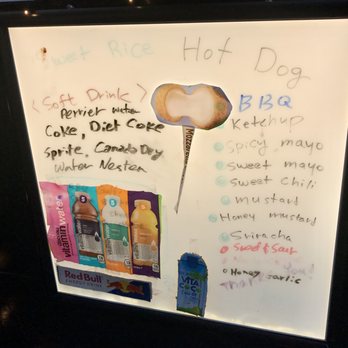 Sweet Rice
Hot Dog
< Soft Drink >
Perrier water
Coke, Diet Coke
Sprite, Canada Dry
Water Nestea
vitaminwater
RedBull
VITA
COCO
BBQ
Ketchup
Spicy mayo
sweet mayo
sweet chili
mustard
Honey mustard
Sriracha
Sweet & Sour
Honey garlic